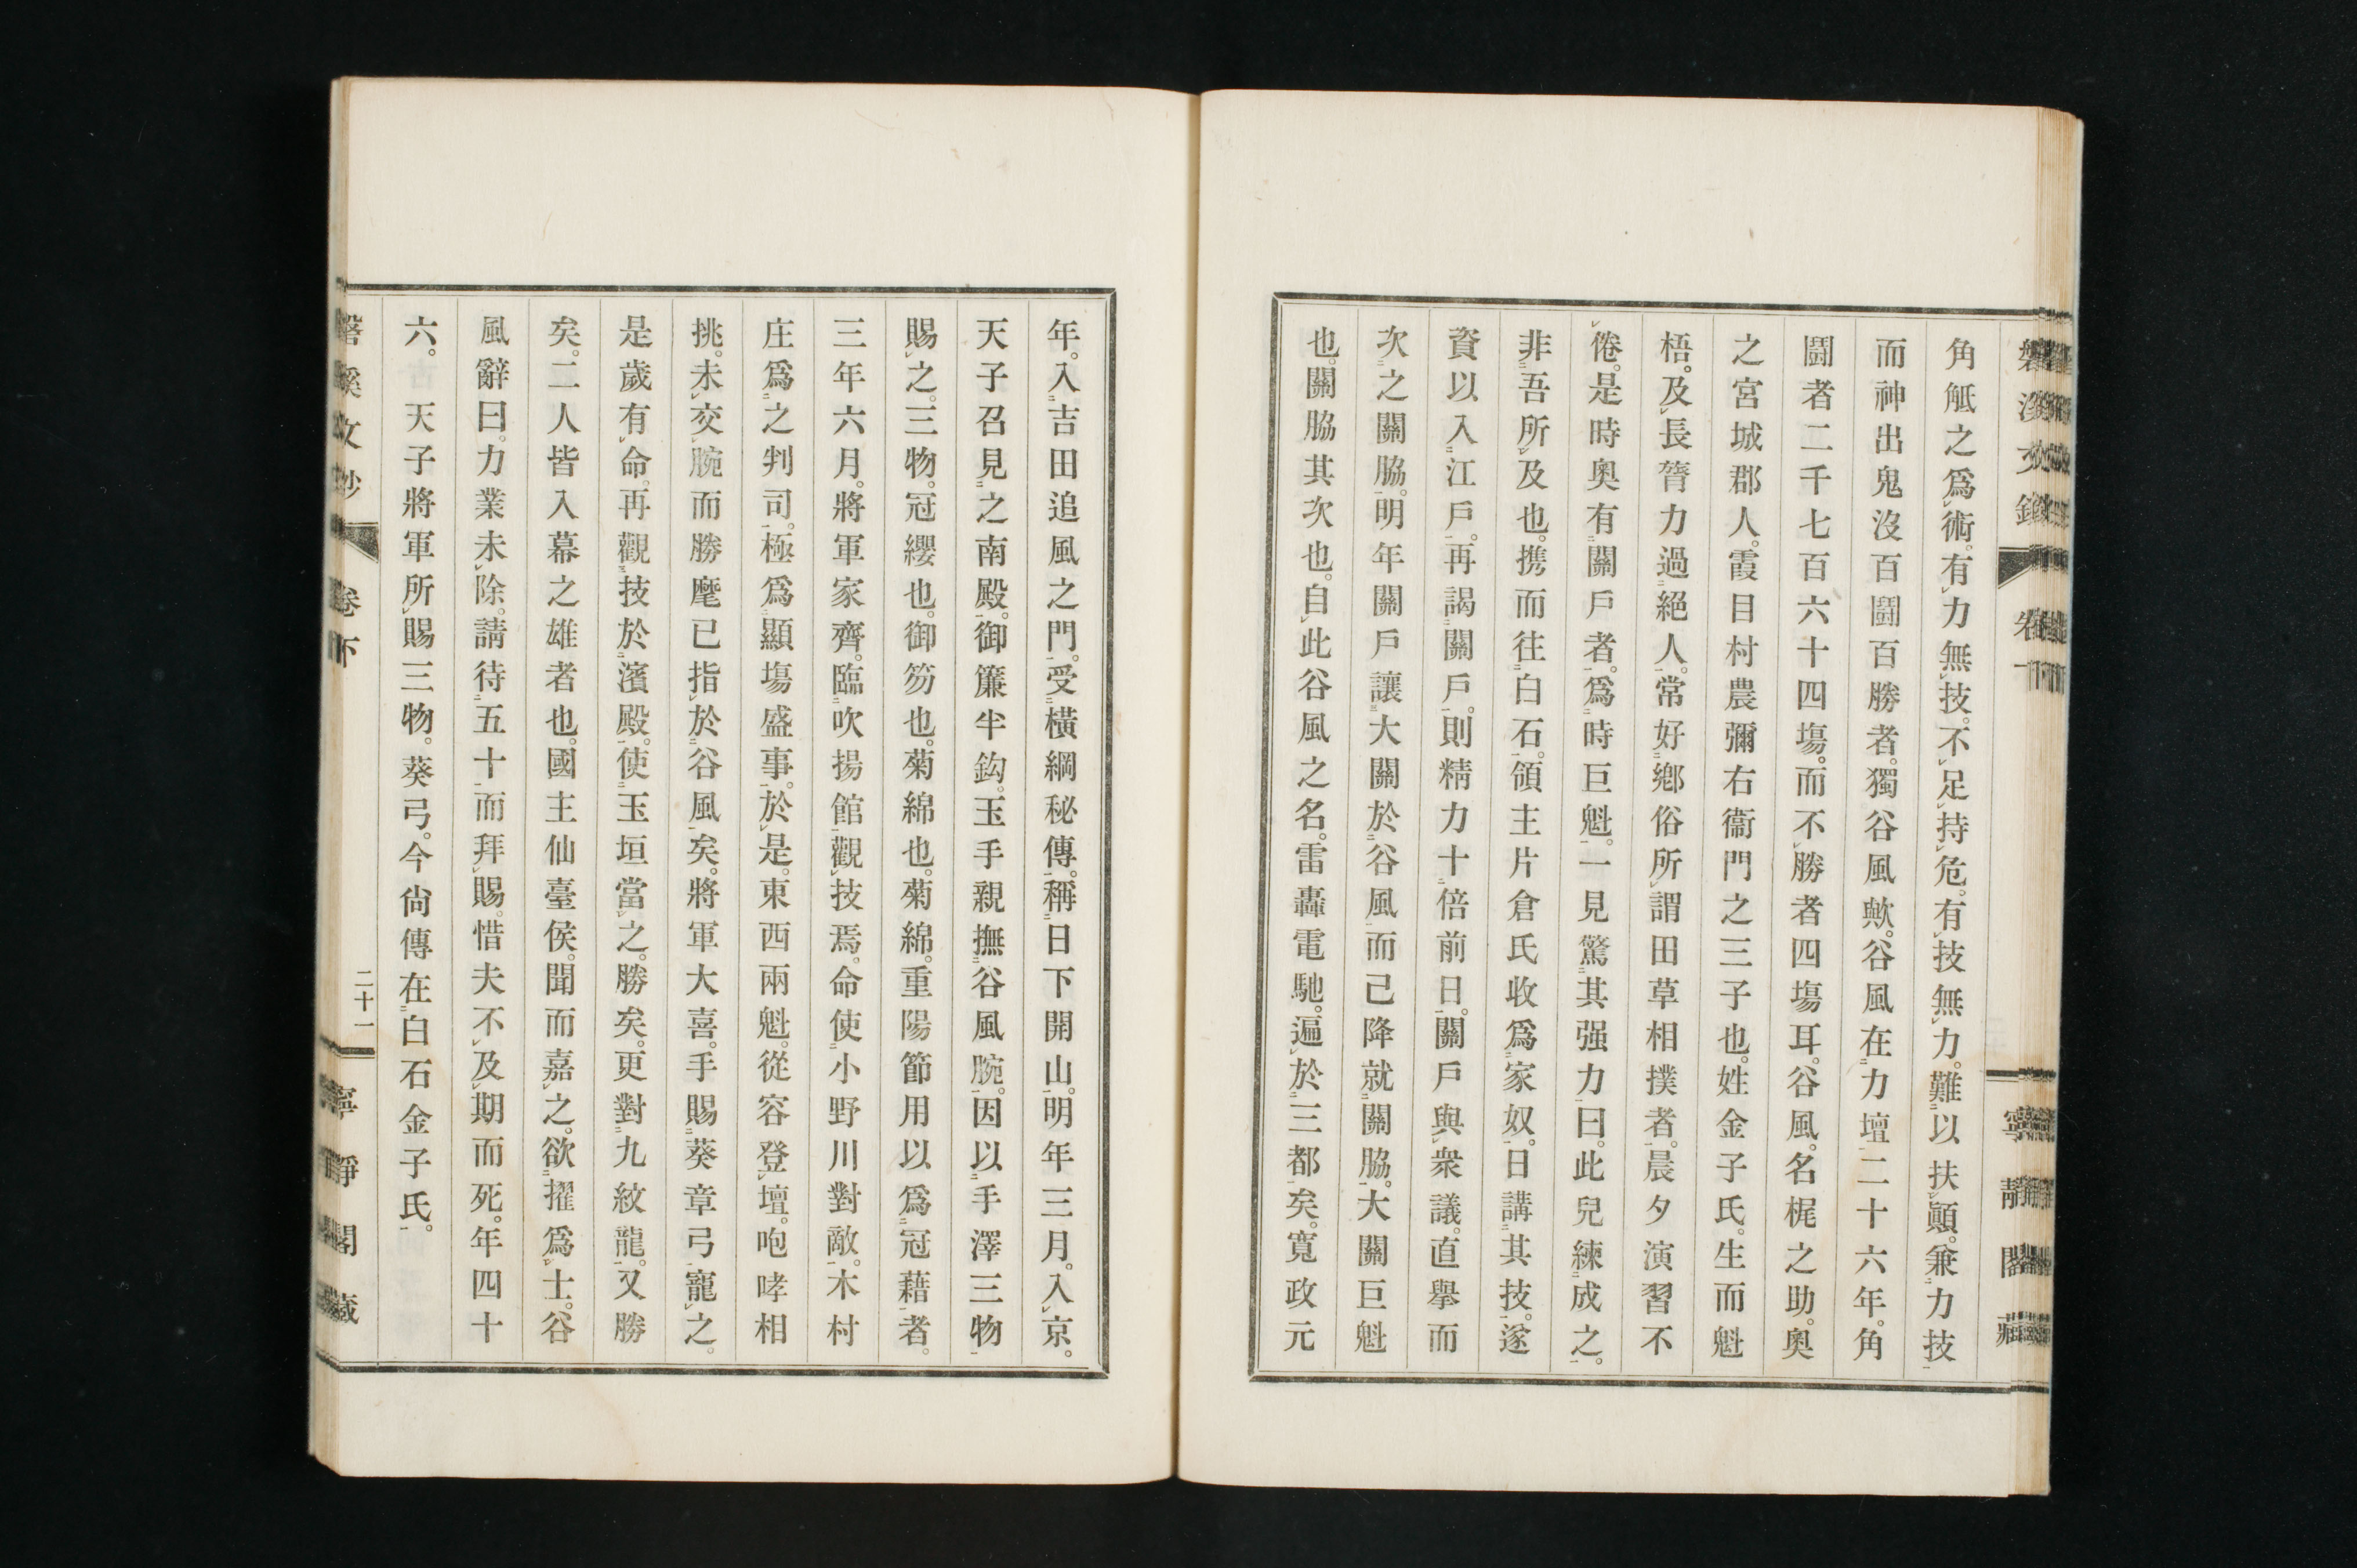 角觝之爲術。有力無技。不足持危。有技無力。難以扶顚。兼力技
而神出鬼沒百鬪百勝者。獨谷風歟。谷風在力壇二十六年。角
鬪者二千七百六十四塲。而不勝者四塲耳。谷風。名梶之助。奥
之宮城郡人。霞目村農彌右衞門之三子也。姓金子氏。生而魁
梧。及長膂力過絕人。常好鄕俗所謂田草相撲者。晨夕演習不
倦。是時奥有關戶者。爲時巨魁。一見驚其强力曰。此兒練成之。
非吾所及也。携而往白石。領主片倉氏收爲家奴。日講其技。遂
資以入江戶。再謁關戶。則精力十倍前日。關戶與衆議。直擧而
次之關脇。明年關戶讓大關於谷風而己降就關脇。大關巨魁
也。關脇其次也。自此谷風之名。雷轟電馳。遍於三都矣。寬政元
年。入吉田追風之門。受橫綱秘傳。稱日下開山。明年三月。入京。
天子召見之南殿。御簾半鈎。玉手親撫谷風腕。因以手澤三物
賜之。三物。冠纓也。御笏也。菊綿也。菊綿。重陽節用以爲冠藉者。
三年六月。將軍家齊。臨吹揚館觀技焉。命使小野川對敵。木村
庄爲之判司。極爲顯塲盛事。於是。東西兩魁。從容登壇。咆哮相
挑。未交腕而勝麾已指於谷風矣。將軍大喜。手賜葵章弓寵之。
是歲有命。再觀技於濱殿。使玉垣當之。勝矣。更對九紋龍。又勝
矣。二人皆入幕之雄者也。國主仙臺侯。聞而嘉之。欲擢爲士。谷
風辭曰。力業未除。請待五十而拜賜。惜夫不及期而死。年四十
六。天子將軍所賜三物。葵弓。今尙傳在白石金子氏。
卷下
二十一
寧靜閣藏